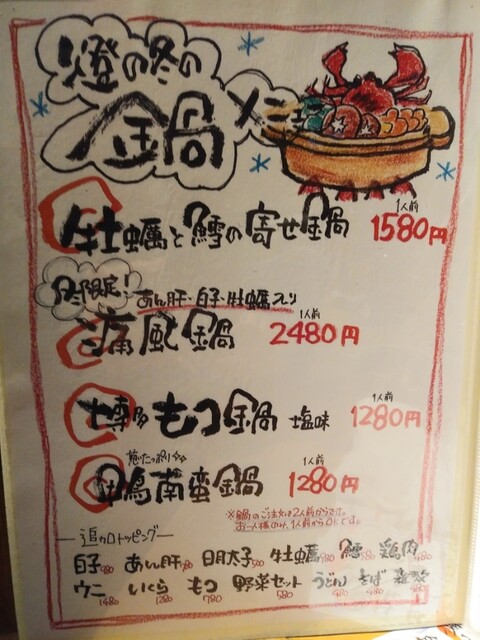 燈の冬の
鍋メニュー
牡蠣と鱈の寄せ鍋 1人前 1580円
冬限定! あん肝・白子・牡蠣入り
痛風鍋 1人前 2480円
博多もつ鍋 塩味 1人前 1280円
葱たっぷり
鴨南蛮鍋 1人前 1280円
※鍋のご注文は2人前からです。
お一人様のみ、1人前からOKです。
追加トッピング
白子 あん肝 明太子 牡蠣 鱈 鶏肉
ウニ 1480 いくら 1280 もつ 780 野菜セット うどん 480 そば 480 雑炊